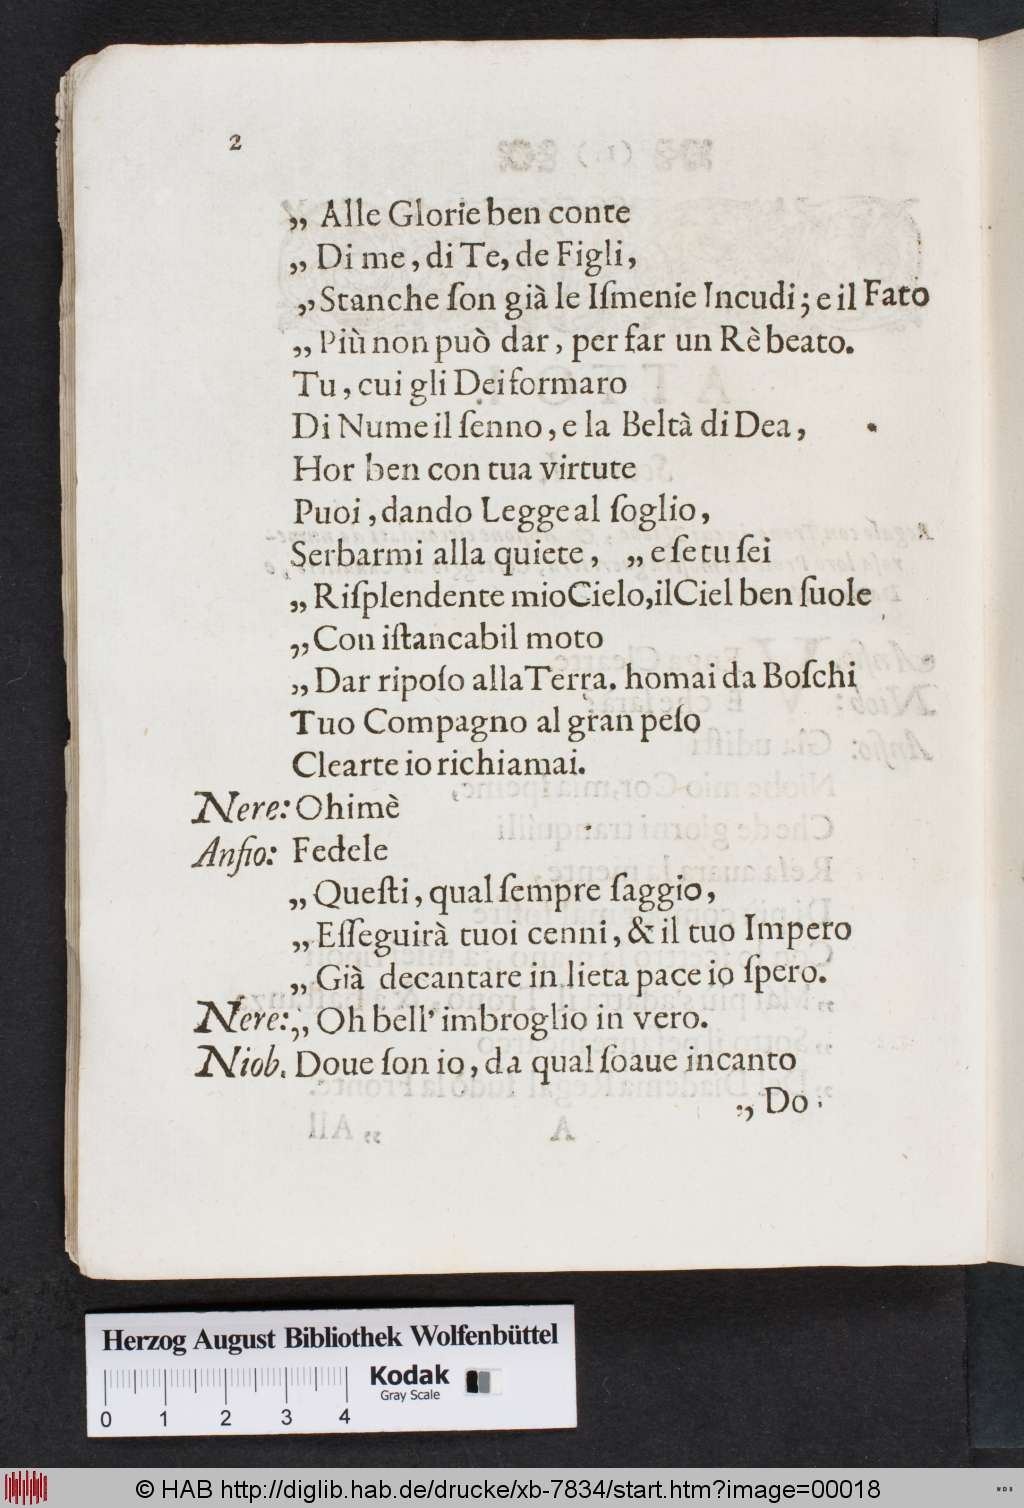 2
„ Alle Glorie ben conte
„ Di me, di Te, de Figli,
„ Stanche ſon già le Iſmenie Incudi; e il Fato
„ Più non può dar, per far un Rè beato.
Tu, cui gli Dei formaro
Di Nume il ſenno, e la Beltà di Dea,
Hor ben con tua virtute
Puoi, dando Legge al ſoglio,
Serbarmi alla quiete, „ e ſe tu ſei
„ Riſplendente mio Cielo, il Ciel ben ſuole
„ Con iſtancabil moto
„ Dar ripoſo alla Terra. homai da Boſchi
Tuo Compagno al gran peſo
Clearte io richiamai.
Nere: Ohimè
Anfio: Fedele
„ Queſti, qual ſempre ſaggio,
„ Eſſeguirà tuoi cenni, & il tuo Impero
„ Già decantare in lieta pace io ſpero.
Nere: „ Oh bell' imbroglio in vero.
Niob. Doue ſon io, da qual ſoaue incanto
„ Do
Herzog August Bibliothek Wolfenbüttel
Kodak
Gray Scale
0 1 2 3 4
© HAB http://diglib.hab.de/drucke/xb-7834/start.htm?image=00018